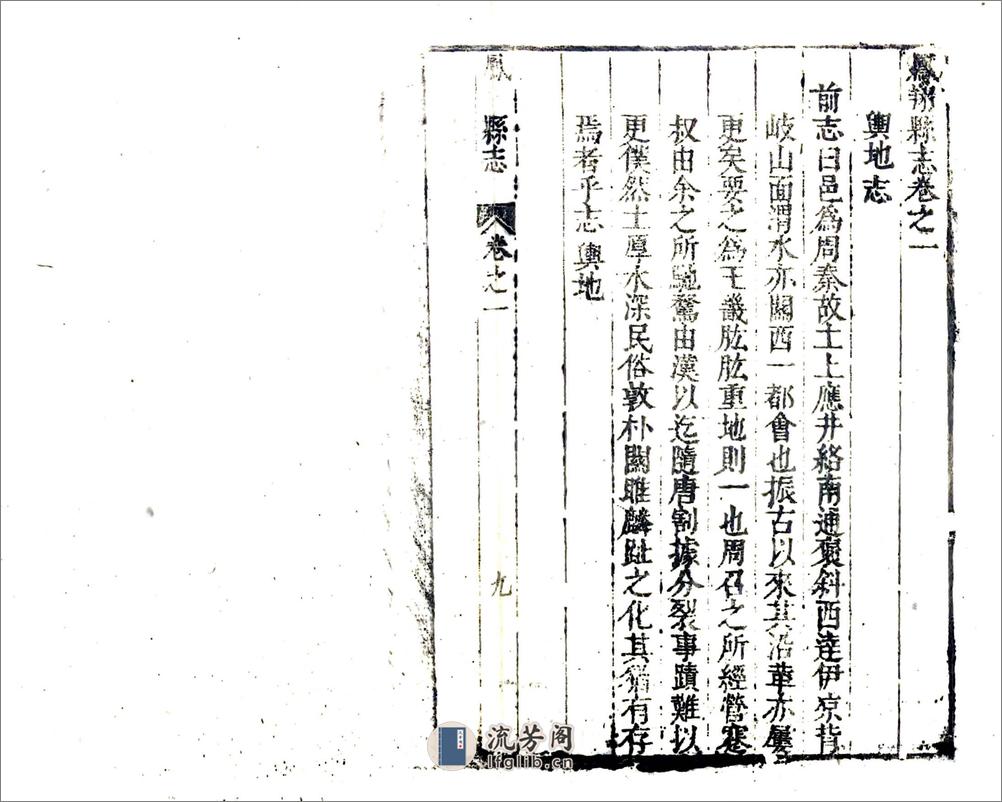 鳳翔縣志卷之一
輿地志
前志曰邑為周秦故土上應井絡南通褒斜西達伊凉背
岐山面渭水亦關西一都會也振古以來其沿革亦屢
更矣要之為王畿肱肱重地則一也周召之所經營蹇
叔由余之所馳騖由漢以迄隨唐割據分裂事蹟難以
更僕然土厚水深民俗敦朴關雎麟趾之化其猶有存
焉者乎志輿地
鳳 縣志 卷之一 九
流芳阁
lfglib.cn